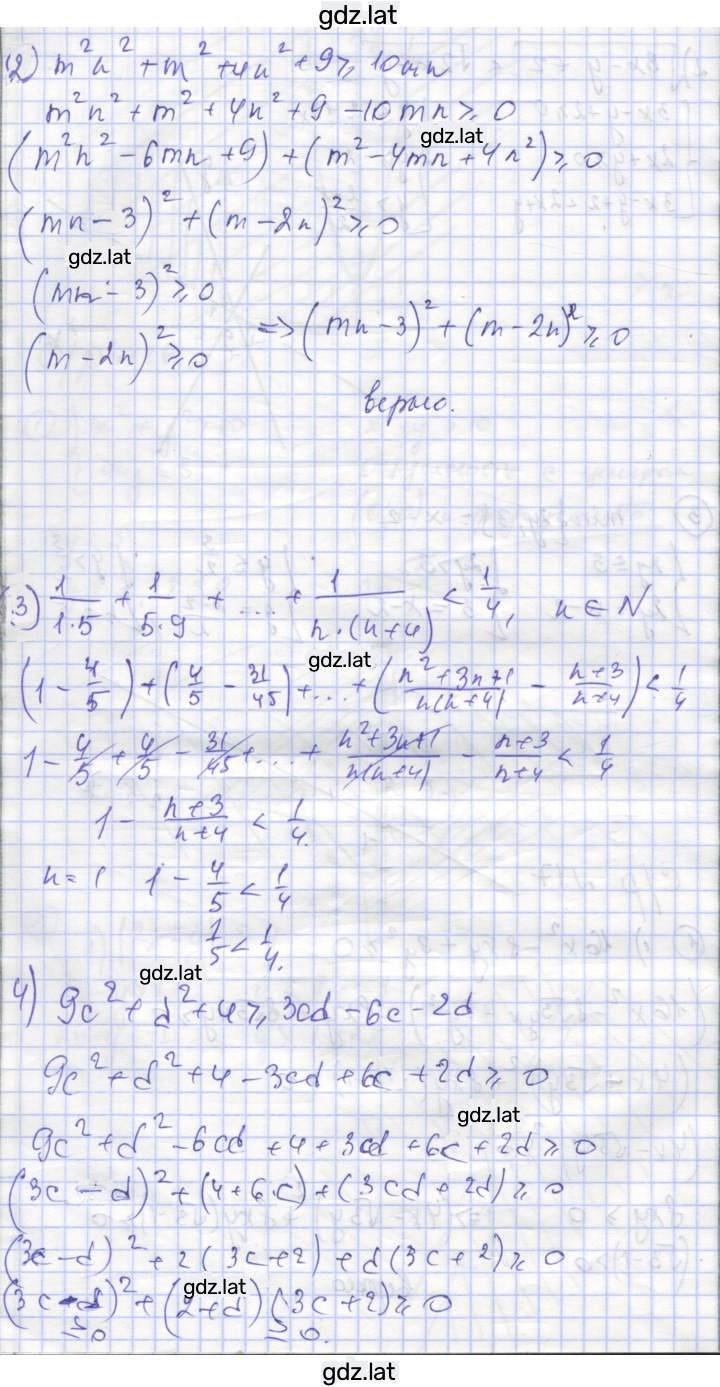 gdz.lat
2) m²n² + m² + 4n² + 9 ≥ 10mn
m²n² + m² + 4n² + 9 - 10mn ≥ 0
gdz.lat
(m²n² - 6mn + 9) + (m² - 4mn + 4n²) ≥ 0
(mn - 3)² + (m - 2n)² ≥ 0
gdz.lat
(mn - 3)² ≥ 0
(m - 2n)² ≥ 0 => (mn - 3)² + (m - 2n)² ≥ 0
верно.
3) 1/(1·5) + 1/(5·9) + .... + 1/(n·(n+4)) < 1/4, n ∈ N
gdz.lat
(1 - 4/5) + (4/5 - 31/45) + ... + ((n²+3n+1)/(n(n+4)) - (n+3)/(n+4)) < 1/4
1 - 4/5 + 4/5 - 31/45 + ... + (n²+3n+1)/(n(n+4)) - (n+3)/(n+4) < 1/4
1 - (n+3)/(n+4) < 1/4.
n = 1 1 - 4/5 < 1/4
1/5 < 1/4.
gdz.lat
4) 9c² + d² + 4 ≥ 3cd - 6c - 2d
9c² + d² + 4 - 3cd + 6c + 2d ≥ 0
gdz.lat
9c² + d² - 6cd + 4 + 3cd + 6c + 2d ≥ 0
(3c - d)² + (4 + 6c) + (3cd + 2d) ≥ 0
(3c - d)² + 2(3c + 2) + d(3c + 2) ≥ 0
gdz.lat
(3c - d)² + (2 + d)(3c + 2) ≥ 0
≥ 0 ≥ 0.
gdz.lat